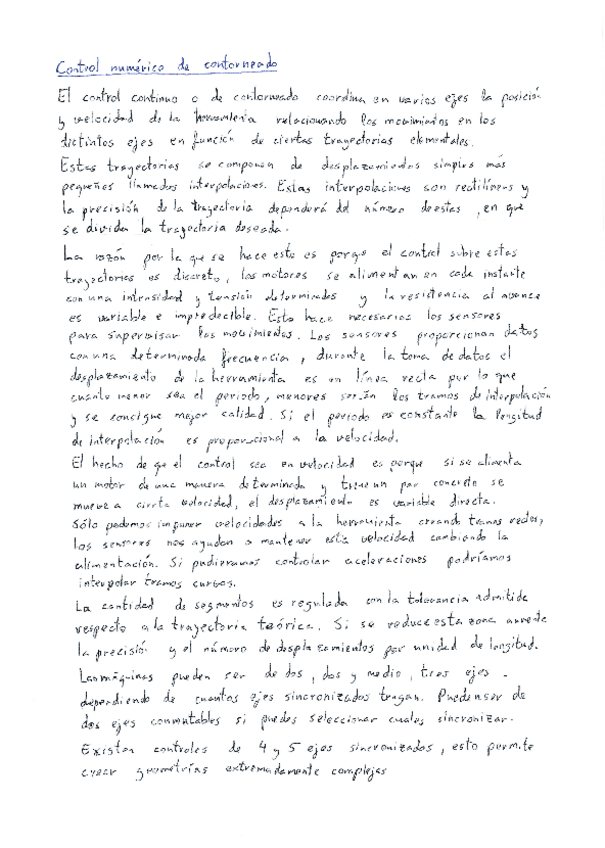 Control numérico de contorneado
El control continuo o de contorneado coordina en varios ejes la posición
y velocidad de la herramienta relacionando los movimientos en los
distintos ejes en función de ciertas trayectorias elementales.
Estas trayectorias se componen de desplazamientos simples más
pequeños llamados interpolaciones. Estas interpolaciones son rectilíneas y
la precisión de la trayectoria dependerá del número de estas, en que
se divida la trayectoria deseada.
La razón por la que se hace esto es porque el control sobre estas
trayectorias es discreto, los motores se alimentan en cada instante
con una intensidad y tensión determinados y la resistencia al avance
es variable e impredecible. Esto hace necesarios los sensores
para supervisar los movimientos. Los sensores proporcionan datos
con una determinada frecuencia, durante la toma de datos el
desplazamiento de la herramienta es en línea recta por lo que
cuanto menor sea el periodo, menores serán los tramos de interpolación
y se consigue mayor calidad. Si el periodo es constante la longitud
de interpolación es proporcional a la velocidad.
El hecho de qe el control sea en velocidad es porque si se alimenta
un motor de una manera determinada y tiene un par concreto se
mueve a cierta velocidad, el desplazamiento es variable directa.
Sólo podemos imponer velocidades a la herramienta creando tramos rectos,
los sensores nos ayudan a mantener esta velocidad cambiando la
alimentación. Si pudieramos controlar aceleraciones podríamos
interpolar tramos curvos.
La cantidad de segmentos es regulada con la tolerancia admitida
respecto a la trayectoria teórica. Si se reduce esta zona aumenta
la precisión y el número de desplazamientos por unidad de longitud.
Las máquinas pueden ser de dos, dos y medio, tres ejes.
dependiendo de cuantos ejes sincronizados tengan. Pueden ser de
dos ejes conmutables si puedes seleccionar cuales sincronizar.
Existen controles de 4 y 5 ejes sincronizados, esto permite
crear geometrías extremadamente complejas